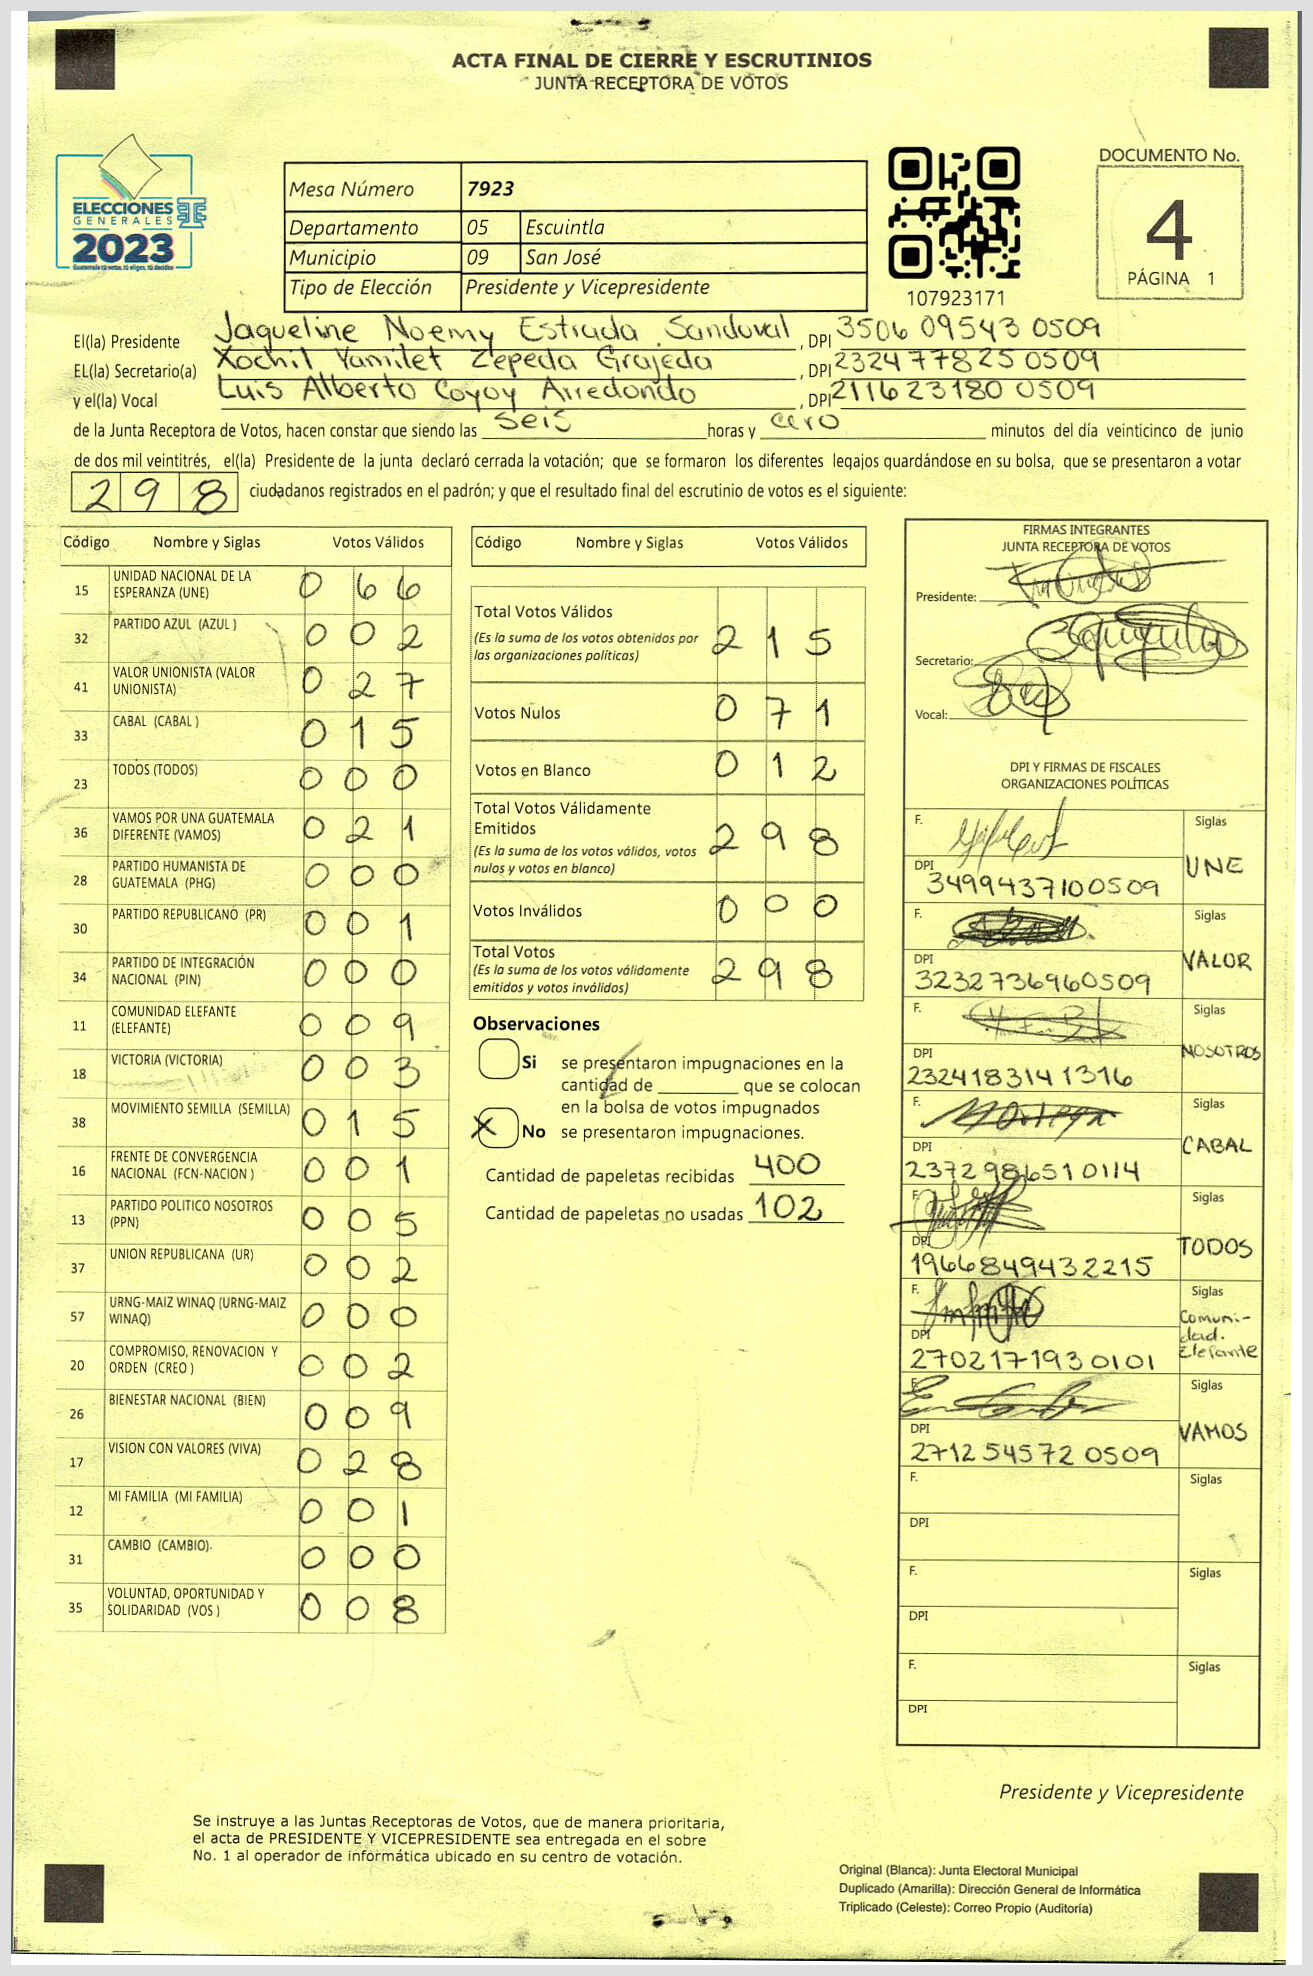 ACTA FINAL DE CIERRE Y ESCRUTINIOS
JUNTA RECEPTORA DE VOTOS
ELECCIONES
GENERALES
2023
Mesa Número 7923
Departamento 05 Escuintla
Municipio 09 San José
Tipo de Elección Presidente y Vicepresidente
107923171
DOCUMENTO No.
4
PÁGINA 1
El(la) Presidente Jaqueline Noemy Estrada Sandoval, DPI 3506 09543 0509
EL(la) Secretario(a) Xochil Yamilet Zepeda Grajeda, DPI 2324 77825 0509
y el(la) Vocal Luis Alberto Coyoy Arredondo, DPI 2116 23180 0509
de la Junta Receptora de Votos, hacen constar que siendo las seis horas y cero minutos del día veinticinco de junio
de dos mil veintitrés, el(la) Presidente de la junta declaró cerrada la votación; que se formaron los diferentes legajos guardándose en su bolsa, que se presentaron a votar
298 ciudadanos registrados en el padrón; y que el resultado final del escrutinio de votos es el siguiente:
Código Nombre y Siglas Votos Válidos
15 UNIDAD NACIONAL DE LA ESPERANZA (UNE) 0 6 6
32 PARTIDO AZUL (AZUL ) 0 0 2
41 VALOR UNIONISTA (VALOR UNIONISTA) 0 2 7
33 CABAL (CABAL ) 0 1 5
23 TODOS (TODOS) 0 0 0
36 VAMOS POR UNA GUATEMALA DIFERENTE (VAMOS) 0 2 1
28 PARTIDO HUMANISTA DE GUATEMALA (PHG) 0 0 0
30 PARTIDO REPUBLICANO (PR) 0 0 1
34 PARTIDO DE INTEGRACIÓN NACIONAL (PIN) 0 0 0
11 COMUNIDAD ELEFANTE (ELEFANTE) 0 0 9
18 VICTORIA (VICTORIA) 0 0 3
38 MOVIMIENTO SEMILLA (SEMILLA) 0 1 5
16 FRENTE DE CONVERGENCIA NACIONAL (FCN-NACION ) 0 0 1
13 PARTIDO POLITICO NOSOTROS (PPN) 0 0 5
37 UNION REPUBLICANA (UR) 0 0 2
57 URNG-MAIZ WINAQ (URNG-MAIZ WINAQ) 0 0 0
20 COMPROMISO, RENOVACION Y ORDEN (CREO ) 0 0 2
26 BIENESTAR NACIONAL (BIEN) 0 0 9
17 VISION CON VALORES (VIVA) 0 2 8
12 MI FAMILIA (MI FAMILIA) 0 0 1
31 CAMBIO (CAMBIO) 0 0 0
35 VOLUNTAD, OPORTUNIDAD Y SOLIDARIDAD (VOS ) 0 0 8
Código Nombre y Siglas Votos Válidos
Total Votos Válidos 2 1 5
(Es la suma de los votos obtenidos por
las organizaciones políticas)
Votos Nulos 0 7 1
Votos en Blanco 0 1 2
Total Votos Válidamente
Emitidos 2 9 8
(Es la suma de los votos válidos, votos
nulos y votos en blanco)
Votos Inválidos 0 0 0
Total Votos 2 9 8
(Es la suma de los votos válidamente
emitidos y votos inválidos)
Observaciones
Si se presentaron impugnaciones en la
cantidad de ________ que se colocan
en la bolsa de votos impugnados
X No se presentaron impugnaciones.
Cantidad de papeletas recibidas 400
Cantidad de papeletas no usadas 102
FIRMAS INTEGRANTES
JUNTA RECEPTORA DE VOTOS
Presidente:
Secretario:
Vocal:
DPI Y FIRMAS DE FISCALES
ORGANIZACIONES POLÍTICAS
F. Siglas
DPI 3499437100509 UNE
F. Siglas
DPI 3232736960509 VALOR
F. Siglas
DPI 2324183141316 NOSOTROS
F. Siglas
DPI 2372986510114 CABAL
F. Siglas
DPI 1966849432215 TODOS
F. Siglas
DPI 2702171930101 Comuni-
dad.
Elefante
F. Siglas
DPI 271254572 0509 VAMOS
F. Siglas
DPI
F. Siglas
DPI
F. Siglas
DPI
Presidente y Vicepresidente
Se instruye a las Juntas Receptoras de Votos, que de manera prioritaria,
el acta de PRESIDENTE Y VICEPRESIDENTE sea entregada en el sobre
No. 1 al operador de informática ubicado en su centro de votación.
Original (Blanca): Junta Electoral Municipal
Duplicado (Amarilla): Dirección General de Informática
Triplicado (Celeste): Correo Propio (Auditoría)